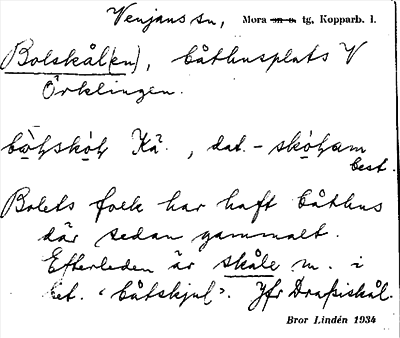 Venjans sn, Mora sn o. tg, Kopparb. l.
Bolskål(en), båthusplats V
Örklingen.
Kä. , dat. -
best.
Bolets folk har haft båthus
där sedan gammalt.
Efterleden är skåle m. i
bet. "båtskjul". Jfr Drafsiskål.
Bror Lindén 1934